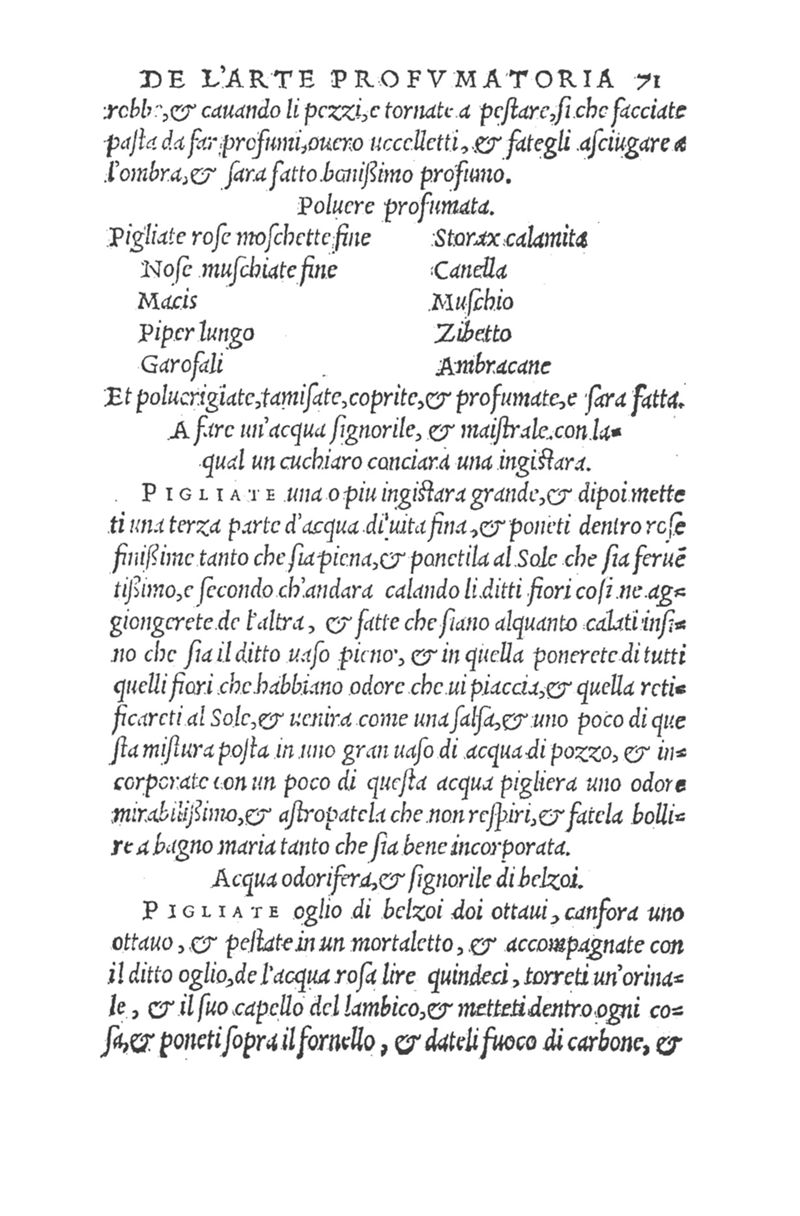 DE L'ARTE PROFVMATORIA 71
robbe, & cauando li pezzi, e tornate a pestare, si che facciate
pasta da far profumi, ouero uccelletti, & fategli asciugare a
l'ombra, & sara fatto bonißimo profumo.
Poluere profumata.
Pigliate rose moschette fine Storax calamita
Nose muschiate fine Canella
Macis Muschio
Piper lungo Zibetto
Garofali Ambracane
Et poluerigiate, tamisate, coprite, & profumate, e sara fatta.
A fare un'acqua signorile, & maistrale con la=
qual un cuchiaro conciara una ingistara.
PIGLIATE una o piu ingistara grande, & dipoi mette
ti una terza parte d'acqua di uita fina, & poneti dentro rose
finißime tanto che sia piena, & ponetila al Sole che sia feruē
tißimo, e secondo ch'andara calando li ditti fiori cosi ne ag=
giongerete de l'altra, & fatte che siano alquanto calati insi=
no che sia il ditto uaso pieno, & in quella ponerete di tutti
quelli fiori che habbiano odore che ui piaccia, & quella reti=
ficareti al Sole, & uenira come una salsa, & uno poco di que
sta mistura posta in uno gran uaso di acqua di pozzo, & in=
corporate con un poco di questa acqua pigliera uno odore
mirabilißimo, & astropatela che non respiri, & fatela bolli=
re a bagno maria tanto che sia bene incorporata.
Acqua odorifera, & signorile di belzoi.
PIGLIATE oglio di belzoi doi ottaui, canfora uno
ottauo, & pestate in un mortaletto, & accompagnate con
il ditto oglio, de l'acqua rosa lire quindeci, torreti un'orina=
le, & il suo capello del lambico, & metteti dentro ogni co=
sa, & poneti sopra il fornello, & dateli fuoco di carbone, &